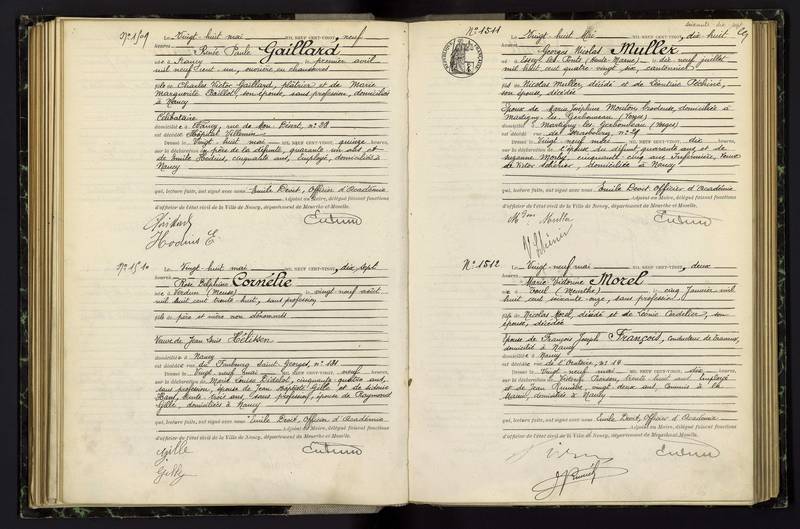 N° 1509
Le Vingt huit mai MIL NEUF CENT-VINGT, neuf
heures
Renée Paule Gaillard
né e à Nancy le premier avril
mil neuf cent un, ouvrière en chaussures
fille de Charles Victor Gaillard, plâtrier et de Marie
Marguerite Caillot, son épouse, sans profession, domiciliés
à Nancy
Célibataire
domicilié e à Nancy, rue de Mon Désert, n° 38
est décédée Hôpital Villemin
Dressé le Vingt huit mai quinze heures
sur la déclaration du père de la défunte, quarante un ans et
de Emile Hodinis, cinquante ans, employé, domiciliés à
Nancy
qui, lecture faite, ont signé avec nous Emile Devit, Officier d'Académie
Adjoint au Maire, délégué faisant fonctions
d'officier de l'état civil de la Ville de Nancy, département de Meurthe-et-Moselle.
Hodinis E
N° 1510
Le Vingt huit mai MIL NEUF CENT-VINGT, dix sept
heures
Rose Delphine Cornélie
né e à Verdun (Meuse) le vingt neuf août
mil huit cent trente huit, sans profession
fille de père et mère non dénommés
Veuve de Jean Louis Hélisson
domicilié e à Nancy
est décédée rue du Faubourg Saint Georges, n° 131
Dressé le Vingt neuf mai neuf heures
sur la déclaration de Marie Louise Didelot, cinquante quatre ans,
sans profession, épouse de Jean Baptiste Gille et de
trente trois ans, sans profession, épouse de Raymond
Gille, domiciliées à Nancy
qui, lecture faite, ont signé avec nous Emile Devit, Officier d'Académie
Adjoint au Maire, délégué faisant fonctions
d'officier de l'état civil de la Ville de Nancy, département de Meurthe-et-Moselle.
Gille
Gille
soixante dix sept
N° 1511
Le Vingt huit Mai MIL NEUF CENT-VINGT, dix huit
heures
Georges Nicolas Muller
né à Essey les Ponts (Haute Marne) le dix neuf juillet
mil huit cent quatre vingt six, cantonnier
fils de Nicolas Muller, décédé et de Léontine
son épouse, décédée
Epoux de Marie Joséphine Mouton, brodeuse, domiciliée à
Madigny les Gerbonvaux (Vosges)
domicilié à Martigny les Gerbonvaux (Vosges)
est décédé rue de Strasbourg, n° 21
Dressé le Vingt neuf mai dix heures
sur la déclaration de l'épouse du défunt, quarante ans et de
Suzanne cinquante cinq ans, infirmière, veuve
de Victor domiciliée à Nancy
qui, lecture faite, ont signé avec nous Emile Devit, Officier d'Académie
Adjoint au Maire, délégué faisant fonctions
d'officier de l'état civil de la Ville de Nancy, département de Meurthe-et-Moselle.
Muller
N° 1512
Le Vingt neuf mai MIL NEUF CENT-VINGT, deux
heures
Marie Victorine Morel
né e à Toul (Meurthe) le cinq Janvier mil
huit cent soixante onze, sans profession
fille de Nicolas Morel, décédé et de Léonie Cordelier, son
épouse, décédée
Epouse de François Joseph François, conducteur de travaux,
domicilié à Nancy
domicilié e à Nancy
est décédée rue de l'Oratoire, n° 14
Dressé le Vingt neuf mai dix heures
sur la déclaration de Victor Pierson, trente huit ans, employé
et de Jean vingt deux ans,
domiciliés à Nancy
qui, lecture faite, ont signé avec nous Emile Devit, Officier d'Académie
Adjoint au Maire, délégué faisant fonctions
d'officier de l'état civil de la Ville de Nancy, département de Meurthe-et-Moselle.